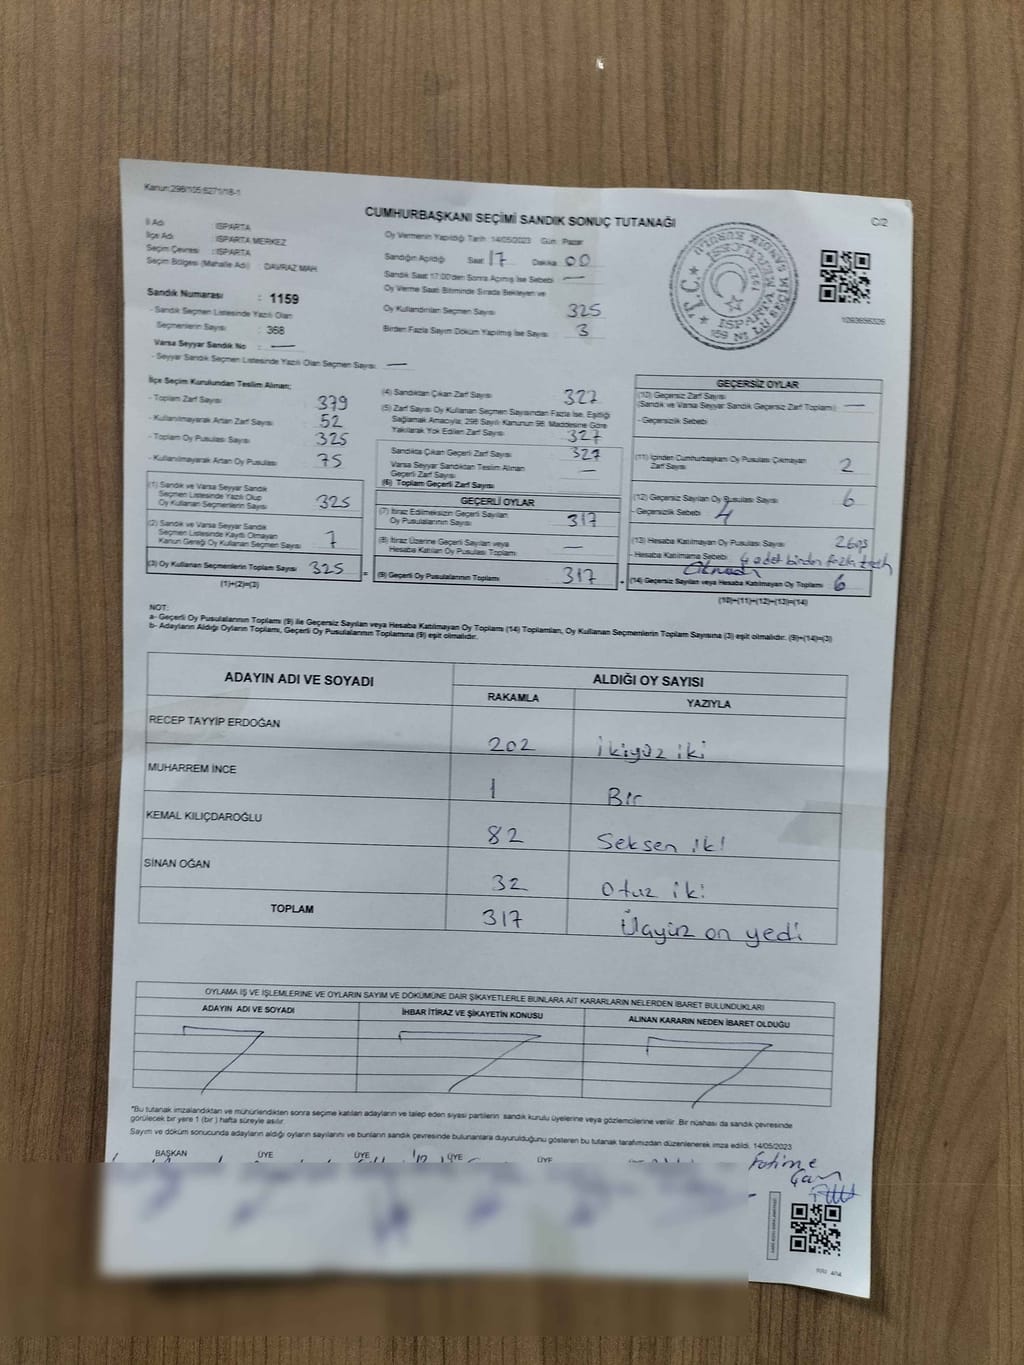 Kanun:298/105;6271/18-1
CUMHURBAŞKANI SEÇİMİ SANDIK SONUÇ TUTANAĞI
C/2
İl Adı : ISPARTA
İlçe Adı : ISPARTA MERKEZ
Seçim Çevresi : ISPARTA
Seçim Bölgesi (Mahalle Adı) : DAVRAZ MAH.
Oy Vermenin Yapıldığı Tarih 14/05/2023 Gün Pazar
Sandığın Açıldığı Saat 17 Dakika 00
Sandık Saat 17:00'den Sonra Açılmış İse Sebebi —
Oy Verme Saati Bitiminde Sırada Bekleyen ve
Oy Kullandırılan Seçmen Sayısı 325
Birden Fazla Sayım Döküm Yapılmış İse Sayısı 3
T.C.
ISPARTA
Sandık Numarası : 1159
- Sandık Seçmen Listesinde Yazılı Olan
Seçmenlerin Sayısı : 368
Varsa Seyyar Sandık No : —
- Seyyar Sandık Seçmen Listesinde Yazılı Olan Seçmen Sayısı —
İlçe Seçim Kurulundan Teslim Alınan;
- Toplam Zarf Sayısı 379
- Kullanılmayarak Artan Zarf Sayısı 52
- Toplam Oy Pusulası Sayısı 325
- Kullanılmayarak Artan Oy Pusulası 75
(1) Sandık ve Varsa Seyyar Sandık
Seçmen Listesinde Yazılı Olup
Oy Kullanan Seçmenlerin Sayısı 325
(2) Sandık ve Varsa Seyyar Sandık
Seçmen Listesinde Kayıtlı Olmayan
Kanun Gereği Oy Kullanan Seçmen Sayısı 7
(3) Oy Kullanan Seçmenlerin Toplam Sayısı 325
(1)+(2)=(3)
(4) Sandıktan Çıkan Zarf Sayısı 327
(5) Zarf Sayısı Oy Kullanan Seçmen Sayısından Fazla İse, Eşitliği
Sağlamak Amacıyla, 298 Sayılı Kanunun 98. Maddesine Göre
Yakılarak Yok Edilen Zarf Sayısı 327
Sandıkta Çıkan Geçerli Zarf Sayısı 327
Varsa Seyyar Sandıktan Teslim Alınan
Geçerli Zarf Sayısı —
(6) Toplam Geçerli Zarf Sayısı
GEÇERLİ OYLAR
(7) İtiraz Edilmeksizin Geçerli Sayılan
Oy Pusulalarının Sayısı 317
(8) İtiraz Üzerine Geçerli Sayılan veya
Hesaba Katılan Oy Pusulası Toplamı —
(9) Geçerli Oy Pusulalarının Toplamı 317
GEÇERSİZ OYLAR
(10) Geçersiz Zarf Sayısı
(Sandık ve Varsa Seyyar Sandık Geçersiz Zarf Toplamı) —
- Geçersizlik Sebebi
(11) İçinden Cumhurbaşkanı Oy Pusulası Çıkmayan
Zarf Sayısı 2
(12) Geçersiz Sayılan Oy Pusulası Sayısı 6
- Geçersizlik Sebebi 4
(13) Hesaba Katılmayan Oy Pusulası Sayısı
- Hesaba Katılmama Sebebi 4 adet birden fazla
(14) Geçersiz Sayılan veya Hesaba Katılmayan Oy Toplamı 6
(10)+(11)+(12)+(13)=(14)
NOT:
a- Geçerli Oy Pusulalarının Toplamı (9) ile Geçersiz Sayılan veya Hesaba Katılmayan Oy Toplamı (14) Toplamları, Oy Kullanan Seçmenlerin Toplam Sayısına (3) eşit olmalıdır. (9)+(14)=(3)
b- Adayların Aldığı Oyların Toplamı, Geçerli Oy Pusulalarının Toplamına (9) eşit olmalıdır.
ADAYIN ADI VE SOYADI ALDIĞI OY SAYISI
RAKAMLA YAZIYLA
RECEP TAYYİP ERDOĞAN 202 ikiyüz iki
MUHARREM İNCE 1 Bir
KEMAL KILIÇDAROĞLU 82 Seksen iki
SİNAN OĞAN 32 Otuz iki
TOPLAM 317 Üçyüz on yedi
OYLAMA İŞ VE İŞLEMLERİNE VE OYLARIN SAYIM VE DÖKÜMÜNE DAİR ŞİKAYETLERLE BUNLARA AİT KARARLARIN NELERDEN İBARET BULUNDUKLARI
ADAYIN ADI VE SOYADI İHBAR İTİRAZ VE ŞİKAYETİN KONUSU ALINAN KARARIN NEDEN İBARET OLDUĞU
*Bu tutanak imzalandıktan ve mühürlendikten sonra seçime katılan adayların ve talep eden siyasi partilerin sandık kurulu üyelerine veya gözlemcilerine verilir. Bir nüshası da sandık çevresinde
görülecek bir yere 1 (bir) hafta süreyle asılır.
Sayım ve döküm sonucunda adayların aldığı oyların sayılarını ve bunların sandık çevresinde bulunanlara duyurulduğunu gösteren bu tutanak tarafımızdan düzenlenerek imza edildi. 14/05/2023
BAŞKAN ÜYE ÜYE ÜYE ÜYE
Fatime